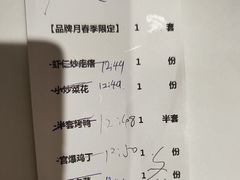 【品牌月春季限定】 1 套
-虾仁炒疙瘩 1 份 12:44
-小炒菜花 1 份 12:49
-半套烤鸭 1 半套 12:48
-宫爆鸡丁 1 份 12:50
份